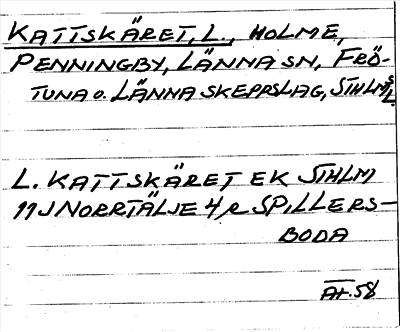 KATTSKÄRET, L., HOLME,
PENNINGBY, LÄNNA SN, FRÖ-
TUNA o. LÄNNA SKEPPSLAG, STHLMS L.
L. KATTSKÄRET EK STHLM
11J NORRTÄLJE 4 r SPILLERS-
BODA
AT.58